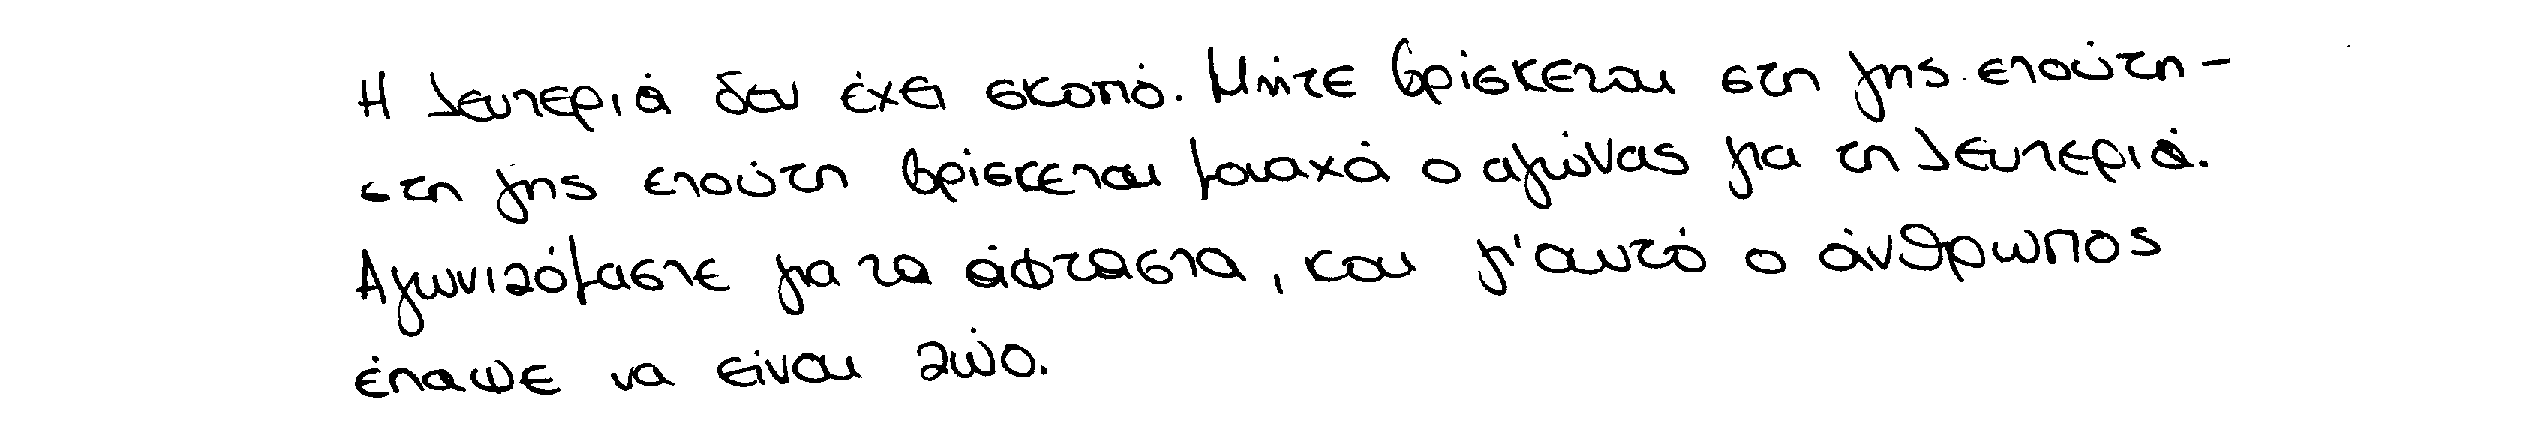 Η λευτεριά δεν έχει σκοπό. Μήτε βρίσκεται στη γης ετούτη -
στη γης ετούτη βρίσκεται μοναχά ο αγώνας για τη λευτεριά.
Αγωνιζόμαστε για τα άφταστα, και γι'αυτό ο άνθρωπος
έπαψε να είναι ζώο.